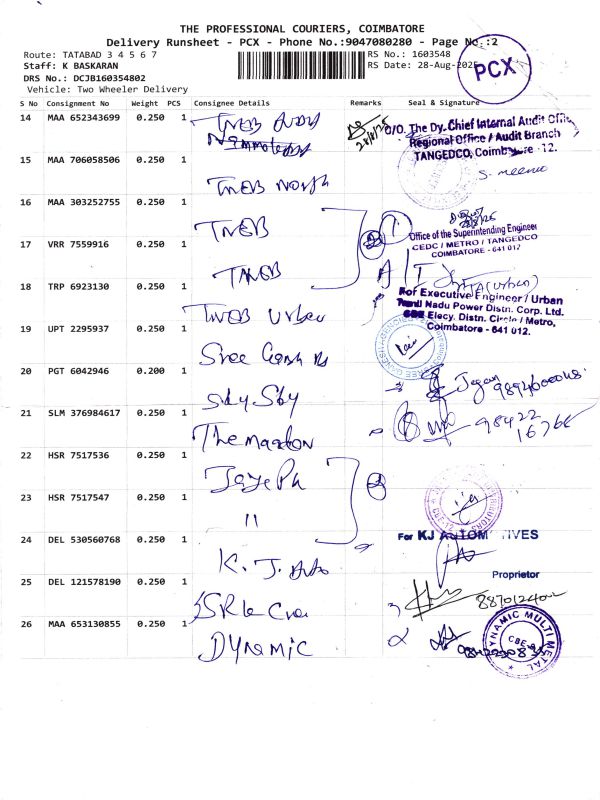 THE PROFESSIONAL COURIERS, COIMBATORE
Delivery Runsheet - PCX - Phone No.:9047080280 - Page No.:2
Route: TATABAD 3 4 5 6 7
Staff: K BASKARAN
DRS No.: DCJB160354802
Vehicle: Two Wheeler Delivery
RS No.: 1603548
RS Date: 28-Aug-2025
PCX
S No Consignment No Weight PCS Consignee Details Remarks Seal & Signature
14 MAA 652343699 0.250 1 TNEB
O/O. The Dy. Chief Internal Audit
Regional Office / Audit Branch
TANGEDCO, Coimbatore - 12.
15 MAA 706058506 0.250 1 TNEB North
S. meena
16 MAA 303252755 0.250 1 TNEB
Office of the Superintending Engineer
CEDC / METRO / TANGEDCO
COIMBATORE - 641 012
17 VRR 7559916 0.250 1 TANEB
18 TRP 6923130 0.250 1 TNEB Urban
For Executive Engineer / Urban
Tamil Nadu Power Distn. Corp. Ltd.
Elecy. Distn. Circle / Metro,
Coimbatore - 641 012.
19 UPT 2295937 0.250 1 Sree
20 PGT 6042946 0.200 1
Jegan
21 SLM 376984617 0.250 1
98422
22 HSR 7517536 0.250 1
23 HSR 7517547 0.250 1 "
24 DEL 530560768 0.250 1 K. J. Auto
For KJ AUTOMOTIVES
Proprietor
25 DEL 121578190 0.250 1
26 MAA 653130855 0.250 1 Dynamic
DYNAMIC MULTI METAL